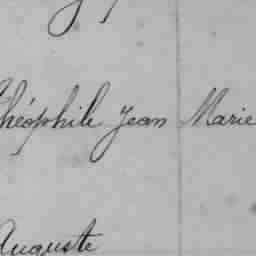 Théophile Jean Marie
Auguste